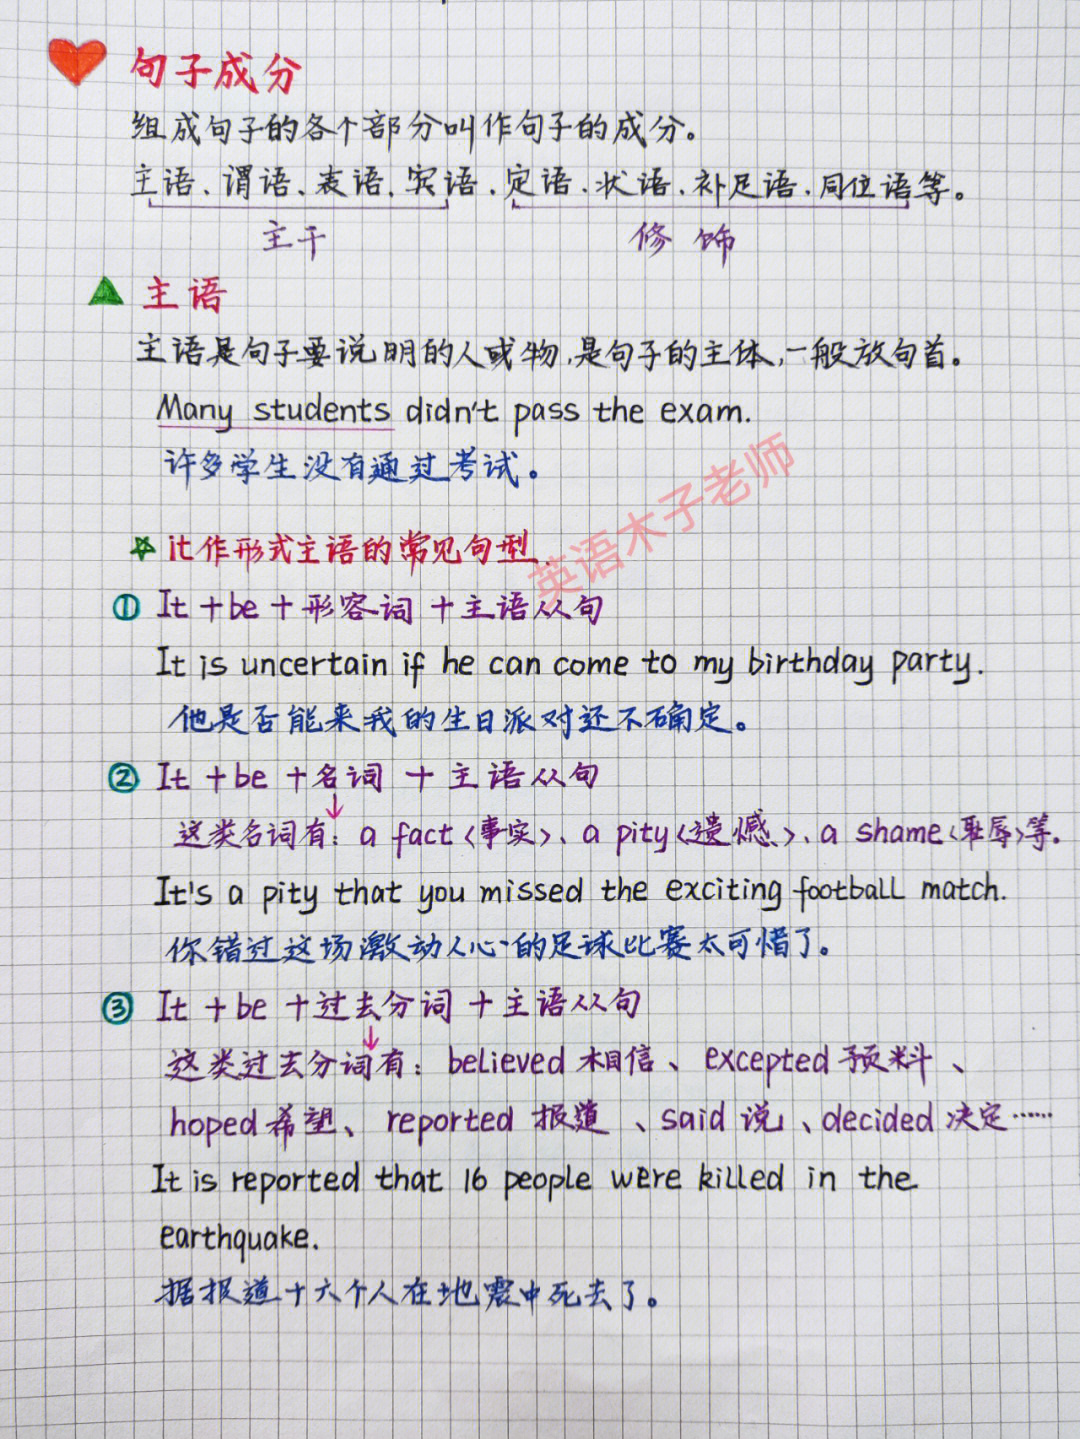 句子成分
组成句子的各个部分叫作句子的成分。
主语、谓语、表语、宾语、定语、状语、补足语、同位语等。
主干 修饰
主语
主语是句子要说明的人或物,是句子的主体,一般放句首。
Many students didn't pass the exam.
许多学生没有通过考试。
英语木子老师
it作形式主语的常见句型.
① It +be +形容词 +主语从句
It is uncertain if he can come to my birthday party.
他是否能来我的生日派对还不确定。
② It +be +名词 +主语从句
这类名词有: a fact<事实>、a pity<遗憾>、a shame<耻辱>等.
It's a pity that you missed the exciting football match.
你错过这场激动人心的足球比赛太可惜了。
③ It +be +过去分词 +主语从句
这类过去分词有: believed 相信、excepted 预料、
hoped 希望、reported 报道、said 说、decided 决定……
It is reported that 16 people were killed in the
earthquake.
据报道十六个人在地震中死去了。